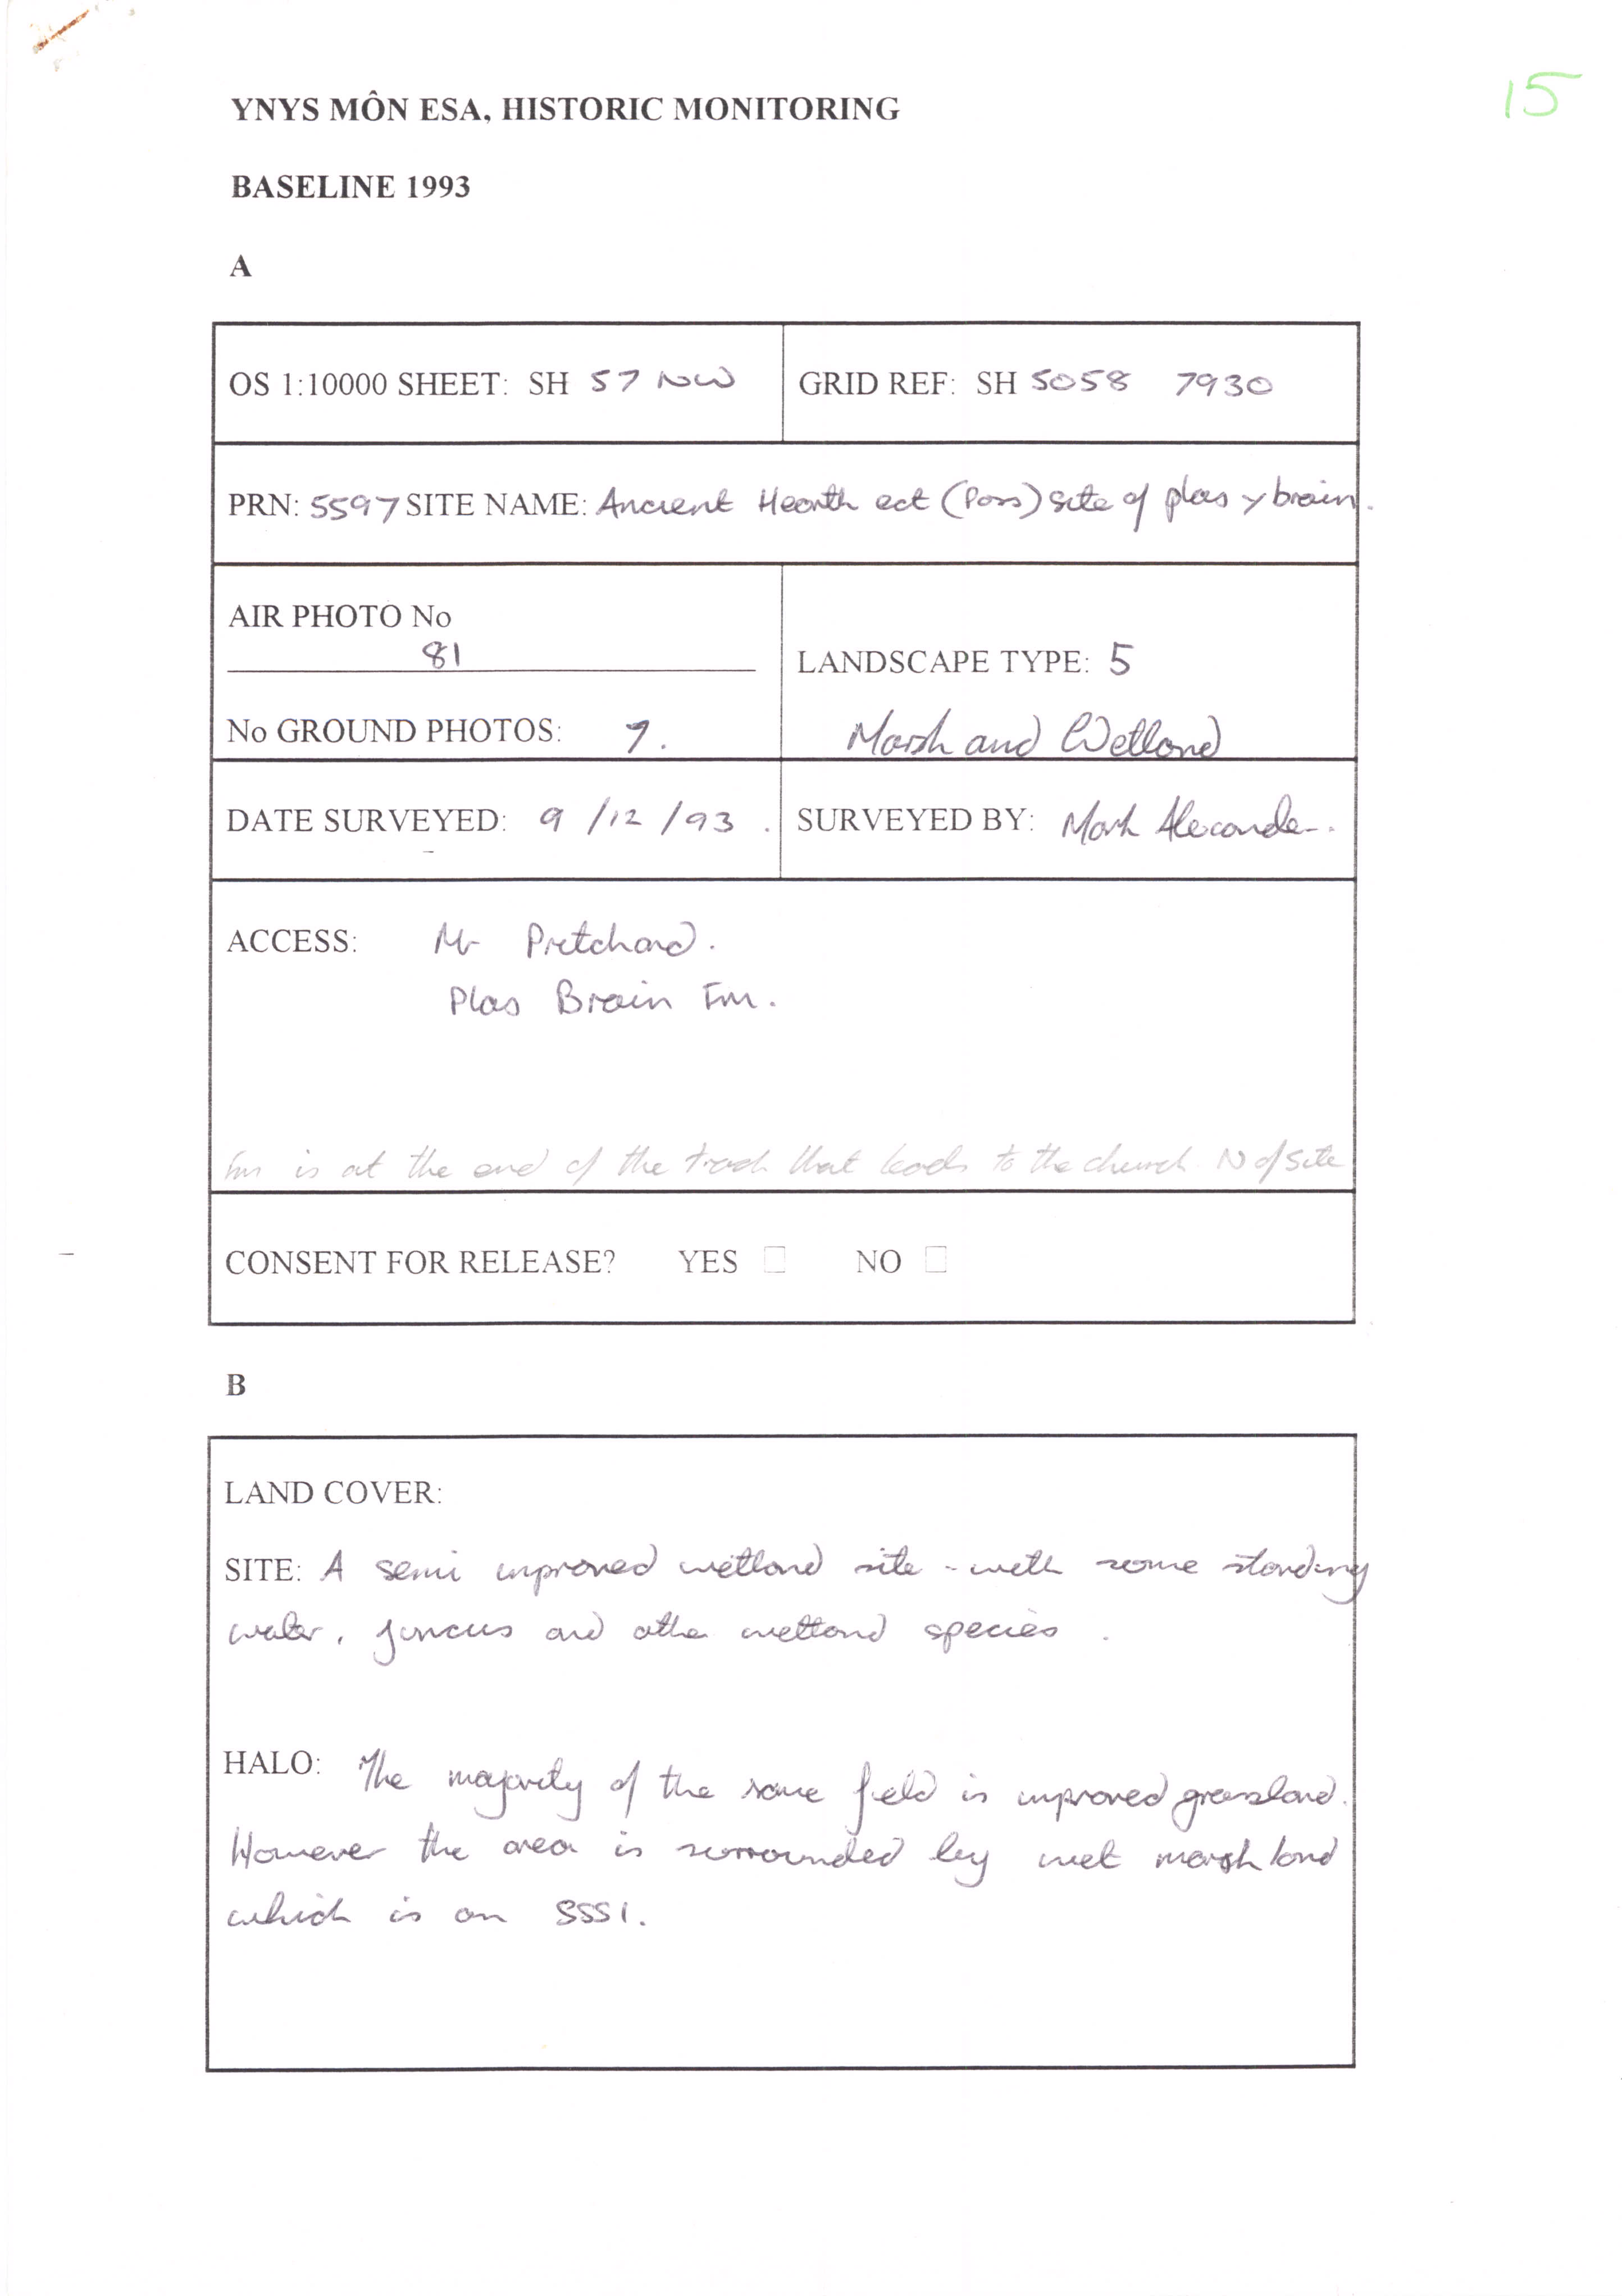 15
YNYS MÔN ESA, HISTORIC MONITORING
BASELINE 1993
A
OS 1:10000 SHEET: SH 57 NW
GRID REF: SH 5058 7930
PRN: 5597 SITE NAME: Ancient Hearth ect (Poss) site of plas y brain.
AIR PHOTO No
81
No GROUND PHOTOS:
LANDSCAPE TYPE: 5
Marsh and Wetland
DATE SURVEYED: 9/12/93.
SURVEYED BY: Mark Alexander.
ACCESS: Mr Pretchard.
Plas Brain Fm.
Fm is at the end of the track that leads to the church N of site
CONSENT FOR RELEASE? YES NO
B
LAND COVER:
SITE: A semi improved wetland site - with some standing
water, juncus and other wetland species.
HALO: The majority of the same field is improved grassland.
However the area is surrounded by wet marsh land
which is an SSSI.